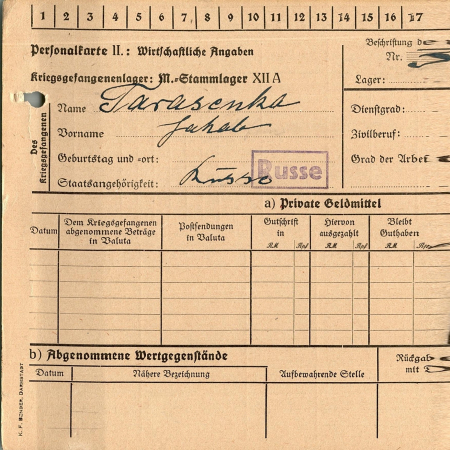 1 2 3 4 5 6 7 8 9 10 11 12 13 14 15 16 17
Personalkarte II.: Wirtschaftliche Angaben
Beschriftung de
Nr.
Kriegsgefangenenlager: M.-Stammlager XII A
Lager:
Des Kriegsgefangenen
Name Tarasenka
Dienstgrad:
Vorname Jakob
Zivilberuf:
Geburtstag und -ort:
Grad der Arbei
Staatsangehörigkeit: Russe
Russe
a) Private Geldmittel
Datum
Dem Kriegsgefangenen abgenommene Beträge in Valuta
Postsendungen in Valuta
Gutschrift in
RM Rpf
Hiervon ausgezahlt
RM Rpf
Bleibt Guthaben
RM Rpf
b) Abgenommene Wertgegenstände
Rückgab
mit
Datum
Nähere Bezeichnung
Aufbewahrende Stelle
K. F. BENDER, DARMSTADT